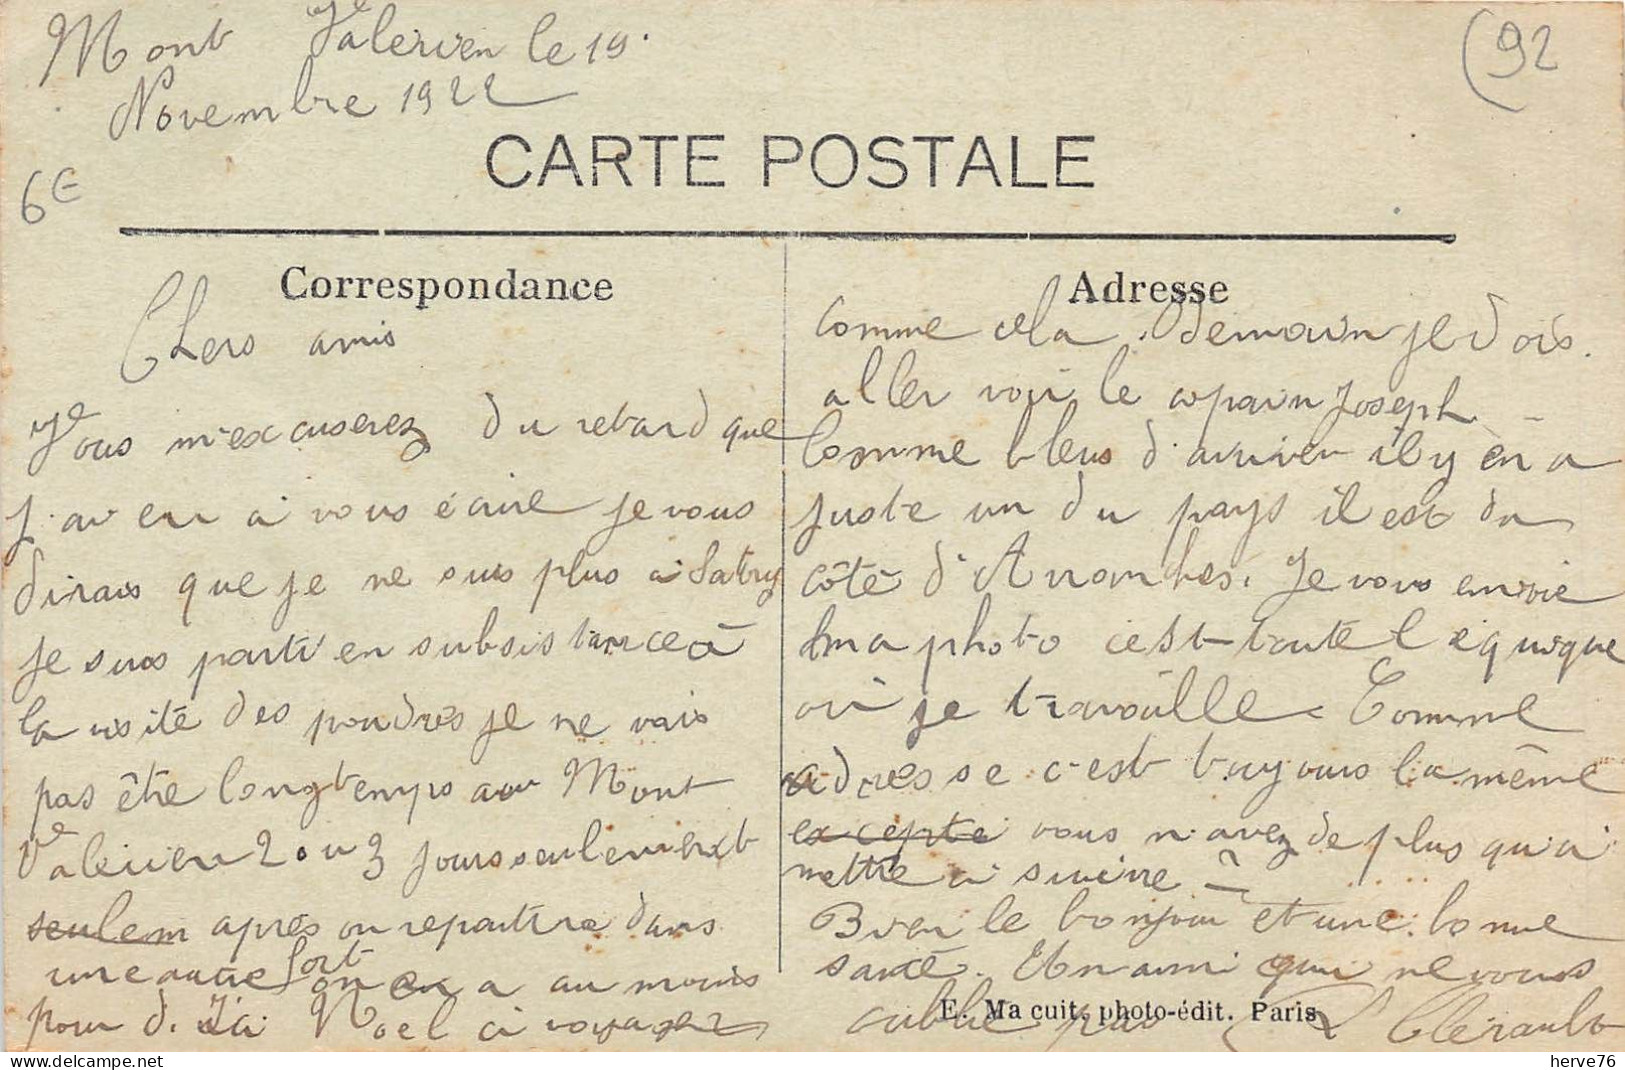 Mont Valerien le 19
Novembre 1922
(92
6€
CARTE POSTALE
Correspondance
Adresse
Chers amis
Vous m'excuserez du retard que
j'ai eu à vous écrire je vous
dirais que je ne suis plus a Satory
je suis parti en subsistance à
la visite des poudres je ne vais
pas être longtemps au Mont
Valerien 2 ou 3 jours seulement
seulem après on repartire dans
une autre fort on en a au moins
pour d'ici Noel a voyager
comme cela. Demain je dois
aller voir le copain Joseph
Comme bleus d'arriver il y en a
juste un du pays il est du
côté d'Avranches. Je vous envoie
ma photo c'est toute l'equique
où je travaille. Comme
adresse c'est toujours la même
excepte vous n'avez de plus qu'a
mettre a suivre
Bien le bonjour et une bonne
santé. Un ami qui ne vous
oublie pas Clérault
E. Macuit, photo-édit. Paris
herve76